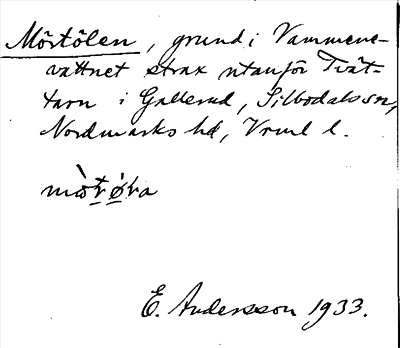 Mörtölen, grund i Vammene-
vattnet strax utanför Tvät-
tarn i Gallerud, Silbodals sn,
Nordmarks hd, Vrml l.
E. Andersson 1933.